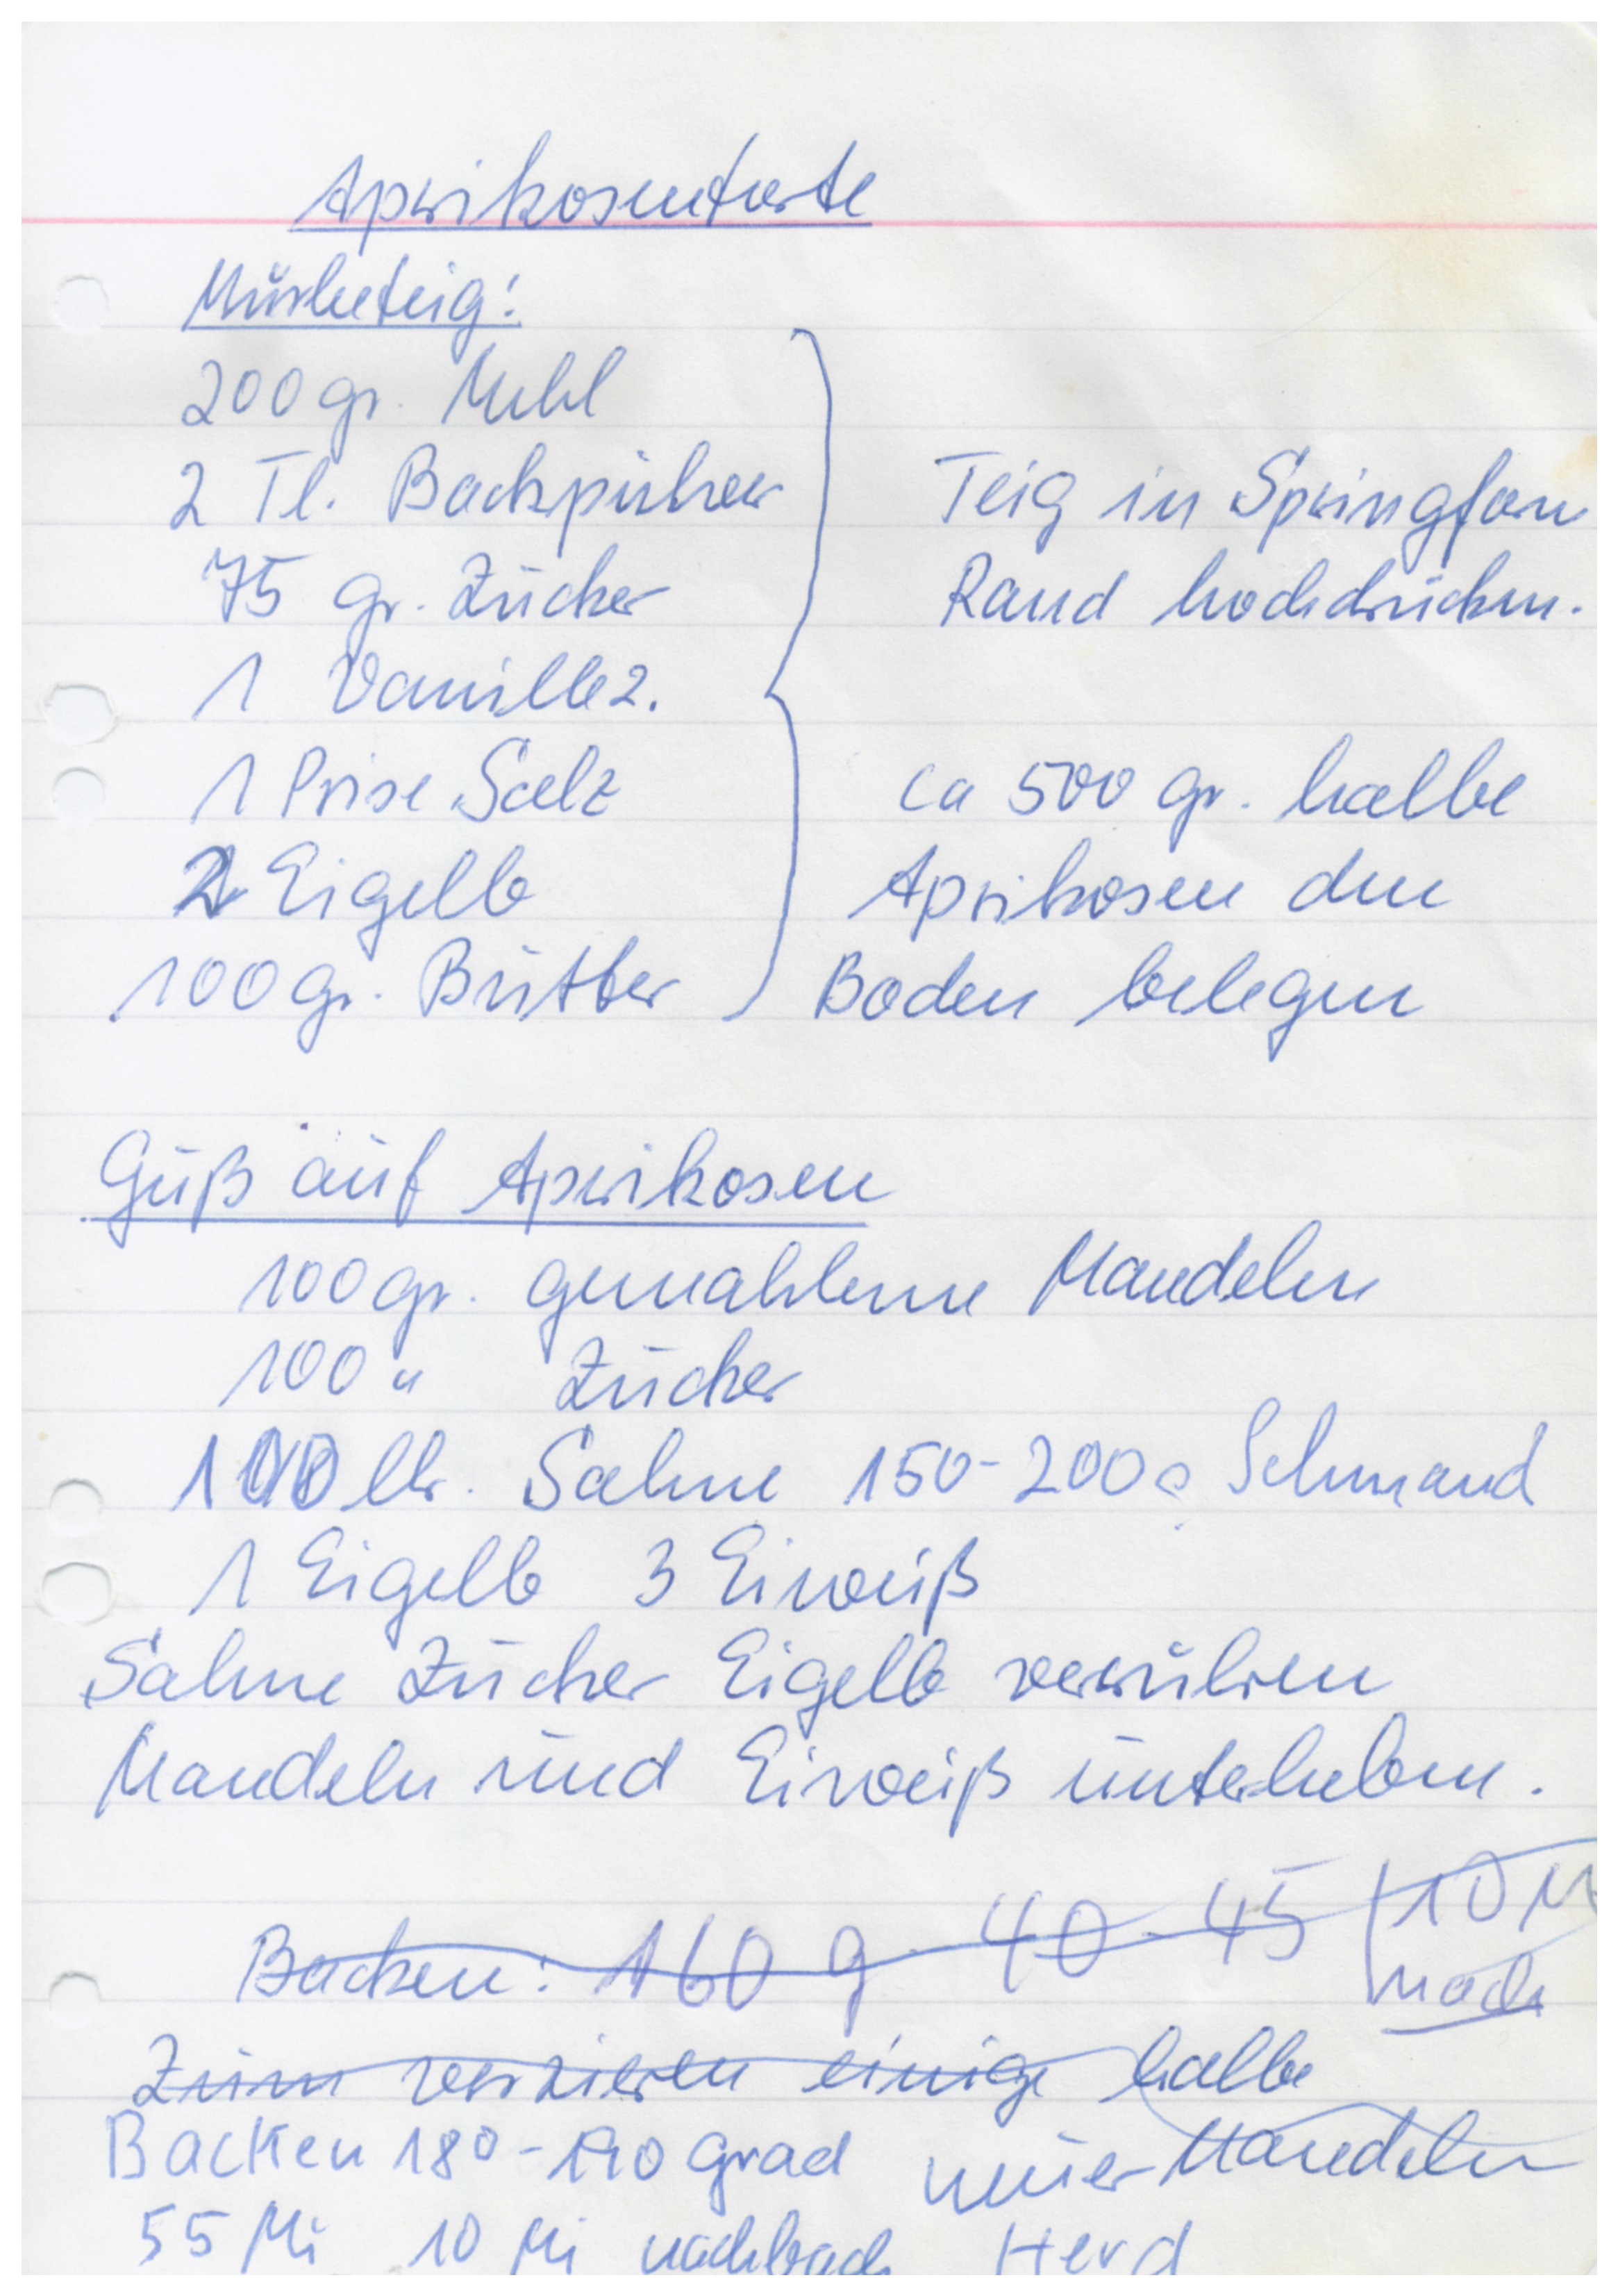 Aprikosentorte
Mürbeteig:
200 gr. Mehl
2 Tl. Backpulver
75 gr. Zucker
1 Vanillez.
1 Prise Salz
2 Eigelb
100 gr. Butter
Teig in Springform
Rand hochdrücken.
ca 500 gr. halbe
Aprikosen den
Boden belegen
Guß auf Aprikosen
100 gr. gemahlene Mandeln
100 " Zucker
Sahne 150-200g Schmand
1 Eigelb 3 Eiweiß
Sahne Zucker Eigelb verrühren
Mandeln und Eiweiß unterheben.
Backen: 160 g 40-45 10 M
nach
Zum verzieren einige halbe
Mandeln
Backen 180-190 grad neuer
55 Mi 10 Mi nachback Herd